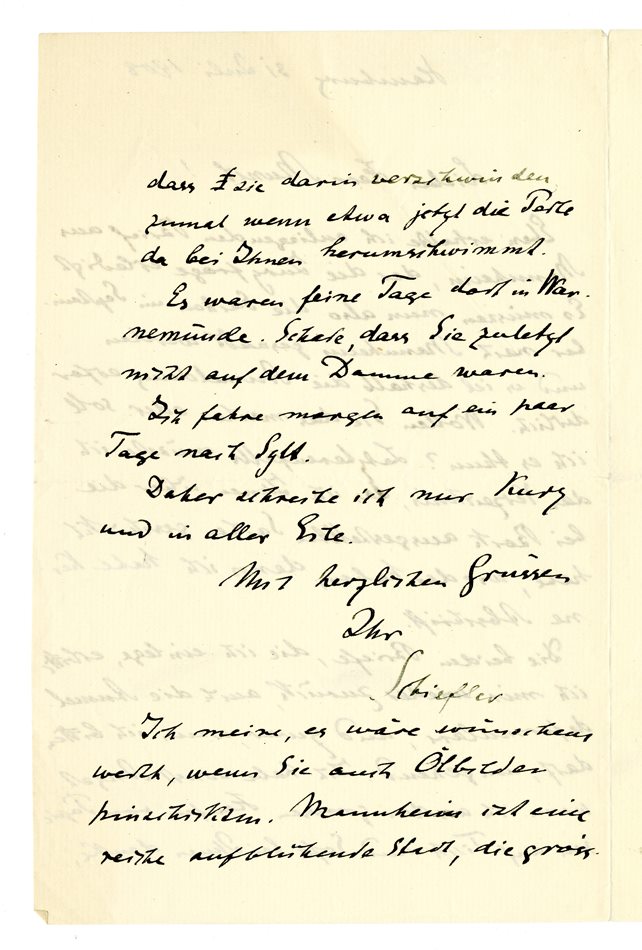 dass sie darin verschwinden
zumal wenn etwa jetzt die Tarte
da bei Ihnen herumschwimmt.
Es waren feine Tage dort in War-
nemünde. Schade, dass Sie zuletzt
nicht auf dem Damme waren.
Ich fahre morgen auf ein paar
Tage nach Sylt.
Daher schreibe ich nur kurz
und in aller Eile.
Mit herzlichen Grüssen
Ihr
Schiefler
Ich meine, es wäre wünschens
werth, wenn Sie auch Ölbilder
hinschicken. Mannheim ist eine
reiche aufblühende Stadt, die gröss-